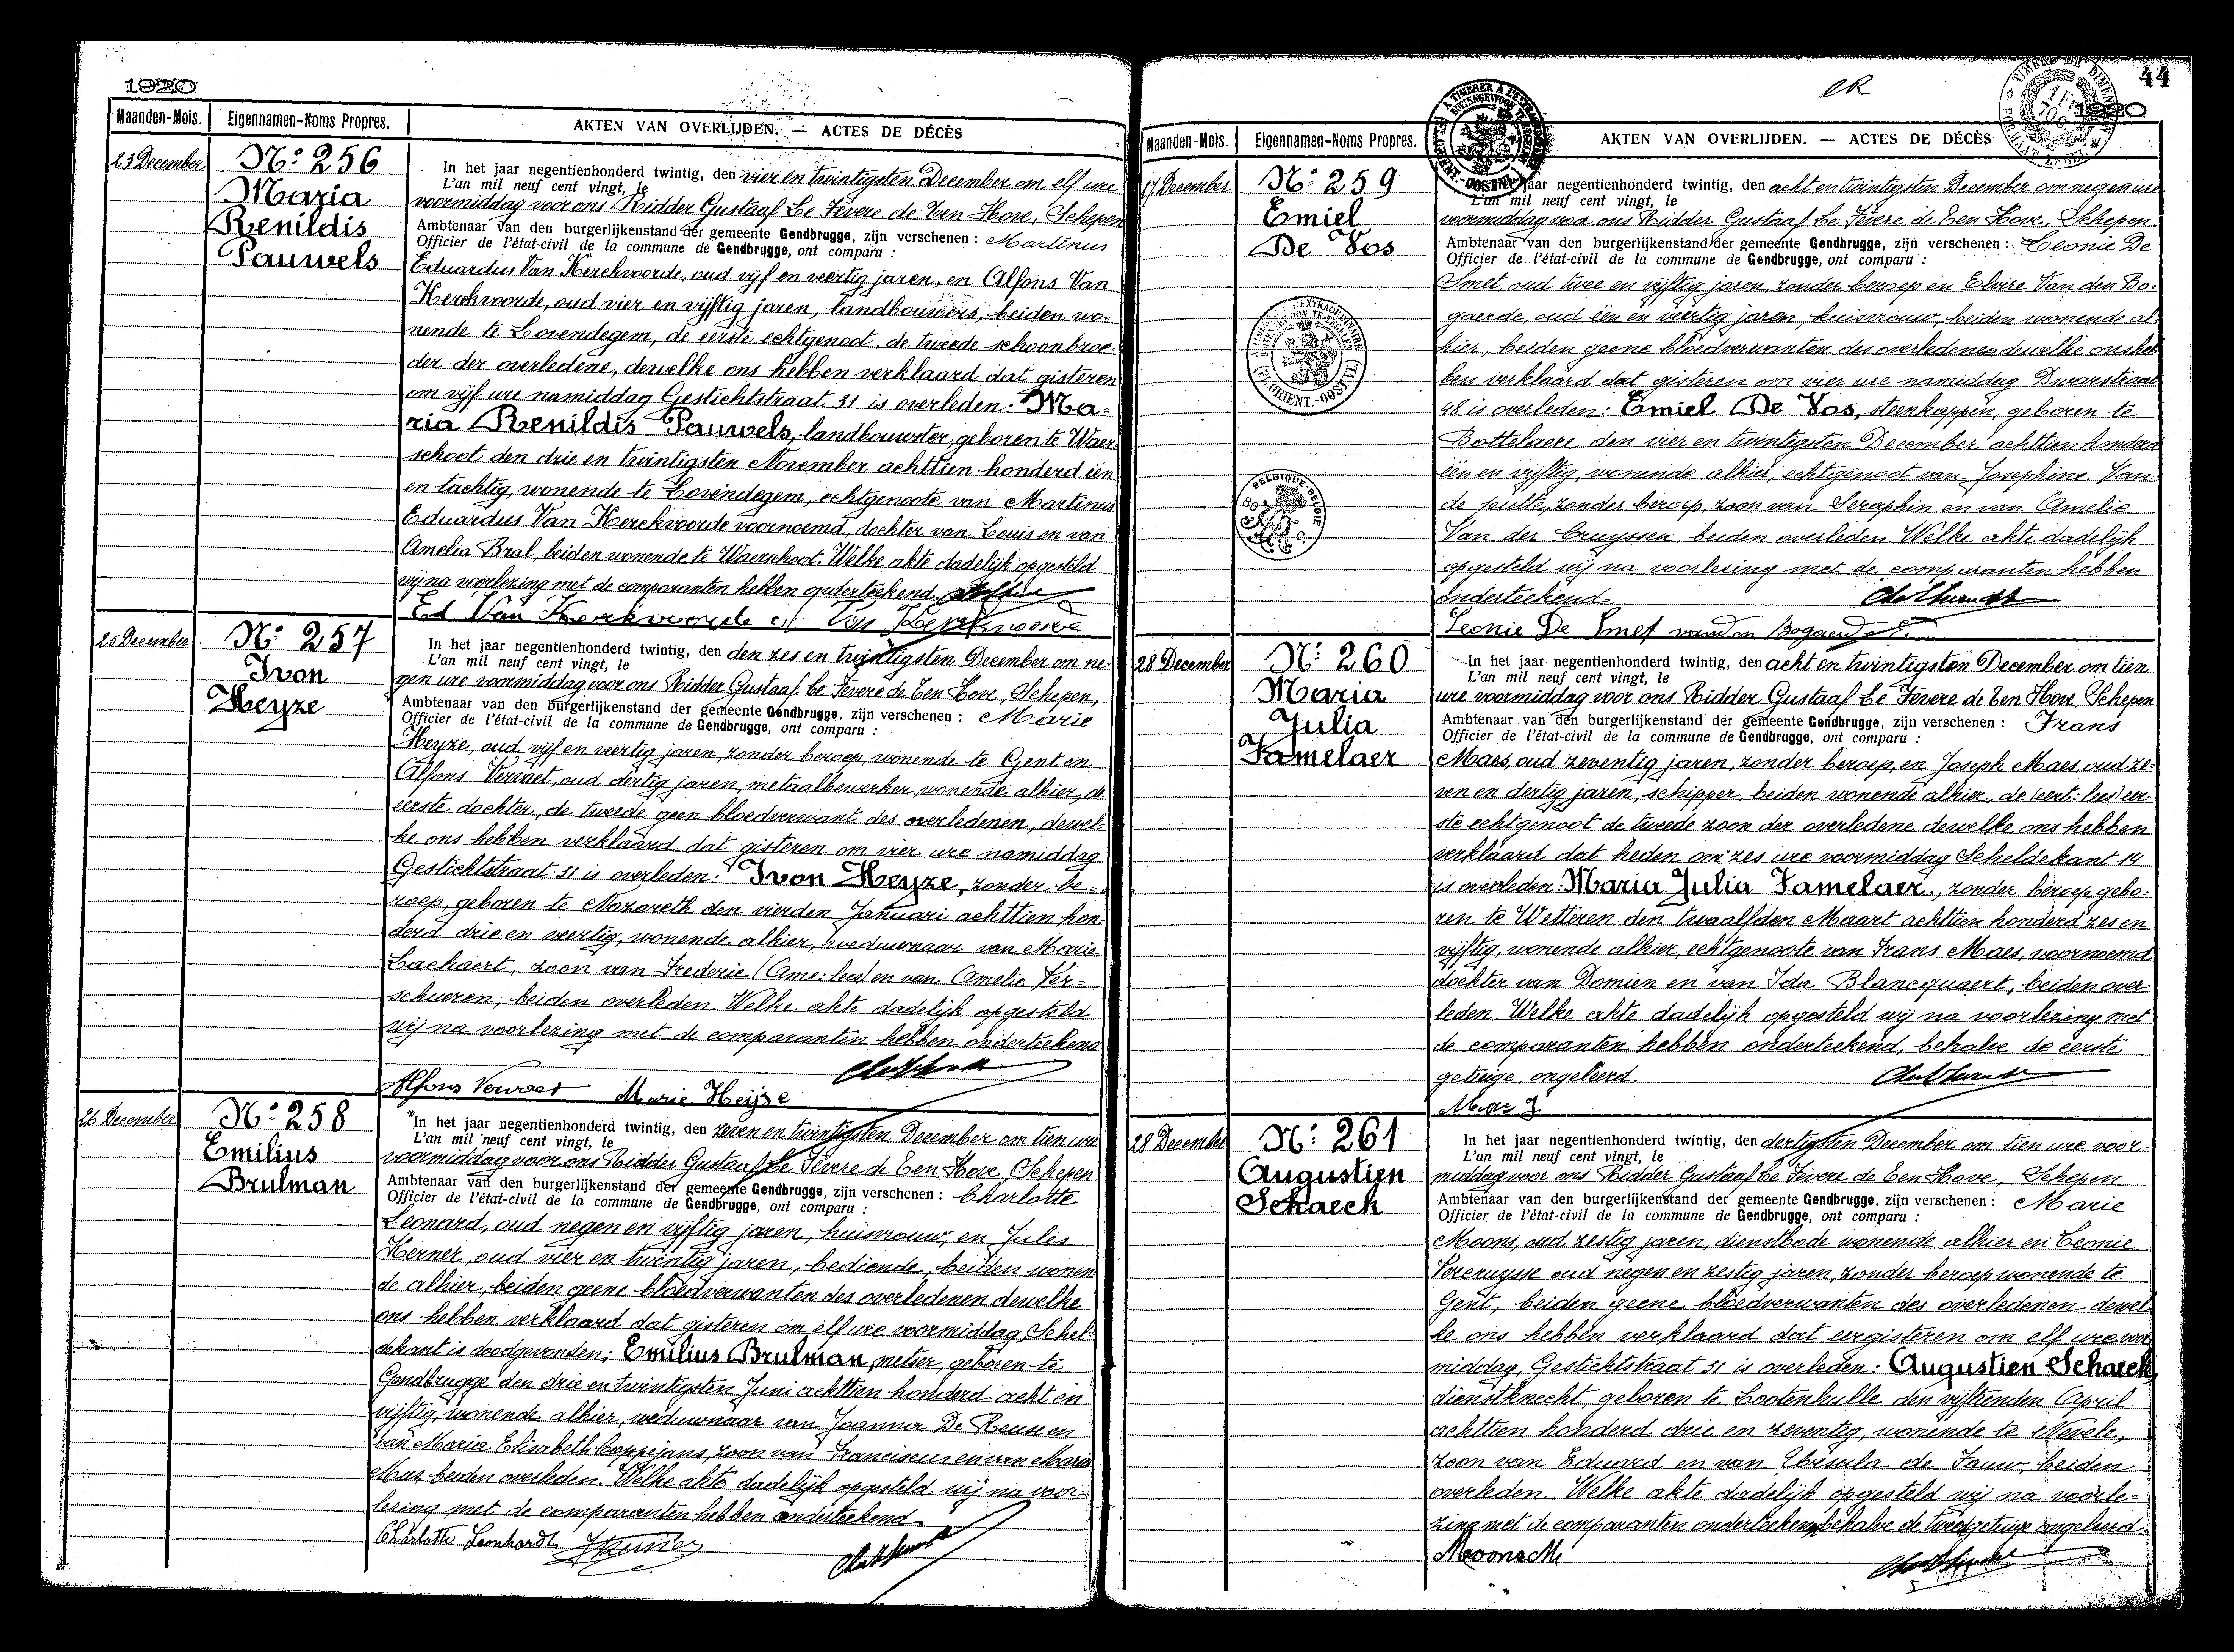 1920
Maanden-Mois. Eigennamen-Noms Propres. AKTEN VAN OVERLIJDEN. — ACTES DE DÉCÈS
23 December
No: 256
Maria
Renildis
Pauwels
In het jaar negentienhonderd twintig, den vier en twintigsten December om elf ure
L'an mil neuf cent vingt, le
voormiddag voor ons Ridder Gustaaf Le Fevere de Ten Hove, Schepen
Ambtenaar van den burgerlijkenstand der gemeente Gendbrugge, zijn verschenen : Martinus
Officier de l'état-civil de la commune de Gendbrugge, ont comparu :
Eduardus Van Kerckvoorde, oud vijf en veertig jaren, en Alfons Van
Kerckvoorde, oud vier en vijftig jaren, landbouwers, beiden wo-
nende te Lovendegem, de eerste echtgenoot, de tweede schoonbroe-
der der overledene, dewelke ons hebben verklaard dat gisteren
om vijf ure namiddag Gestichtstraat 31 is overleden: Ma-
ria Renildis Pauwels, landbouwster, geboren te Waer-
schoot den drie en twintigsten November achttien honderd één
en tachtig, wonende te Lovendegem, echtgenoote van Martinus
Eduardus Van Kerckvoorde voornoemd, dochter van Louis en van
Amelia Bral, beiden wonende te Waerschoot. Welke akte dadelijk opgesteld
wij na voorlezing met de comparanten hebben onderteekend.
Ed Van Kerkvoorde Van Kerkvoorde
25 December
No: 257
Ivon
Heyze
In het jaar negentienhonderd twintig, den den zes en twintigsten December om ne-
L'an mil neuf cent vingt, le
gen ure voormiddag voor ons Ridder Gustaaf Le Fevere de Ten Hove, Schepen,
Ambtenaar van den burgerlijkenstand der gemeente Gendbrugge, zijn verschenen : Marie
Officier de l'état-civil de la commune de Gendbrugge, ont comparu :
Heyze, oud vijf en veertig jaren, zonder beroep, wonende te Gent en
Alfons Vervaet, oud dertig jaren, metaalbewerker, wonende alhier, de
eerste dochter, de tweede geen bloedverwant des overledenen, dewel-
ke ons hebben verklaard dat gisteren om vier ure namiddag
Gestichtstraat 31 is overleden: Ivon Heyze, zonder be-
roep, geboren te Nazareth den vierden Januari achttien hon-
derd drie en veertig, wonende alhier, weduwnaar van Marie
Lachaert, zoon van Frederic (Ame: lees) en van Amelie Ver-
schueren, beiden overleden. Welke akte dadelijk opgesteld
wij na voorlezing met de comparanten hebben onderteekend
Alfons Vervaet Marie Heijse
26 December
No: 258
Emilius
Brulman
In het jaar negentienhonderd twintig, den zeven en twintigsten December om tien ure
L'an mil neuf cent vingt, le
voormiddag voor ons Ridder Gustaaf Le Fevere de Ten Hove, Schepen
Ambtenaar van den burgerlijkenstand der gemeente Gendbrugge, zijn verschenen : Charlotte
Officier de l'état-civil de la commune de Gendbrugge, ont comparu :
Leonard, oud negen en vijftig jaren, huisvrouw, en Jules
Kerner, oud vier en twintig jaren, bediende, beiden wonen
de alhier, beiden geene bloedverwanten des overledenen dewelke
ons hebben verklaard dat gisteren om elf ure voormiddag, Schel-
dekant is doodgevonden: Emilius Brulman, metser, geboren te
Gendbrugge den drie en twintigsten Juni achttien honderd acht en
vijftig, wonende alhier, weduwnaar van Joanna De Reuse en
van Maria Elisabeth Coppejans, zoon van Franciscus en van Maria
Mus, beiden overleden. Welke akte dadelijk opgesteld wij na voor-
lezing met de comparanten hebben onderteekend
Charlotte Leonhardt
44
1920
Maanden-Mois. Eigennamen-Noms Propres. AKTEN VAN OVERLIJDEN. — ACTES DE DÉCÈS
27 December
No: 259
Emiel
De Vos
jaar negentienhonderd twintig, den acht en twintigsten December om negen ure
L'an mil neuf cent vingt, le
voormiddag voor ons Ridder Gustaaf Le Fevere de Ten Hove, Schepen
Ambtenaar van den burgerlijkenstand der gemeente Gendbrugge, zijn verschenen : Leonie De
Officier de l'état-civil de la commune de Gendbrugge, ont comparu :
Smet, oud twee en vijftig jaren, zonder beroep en Elvire Van den Bo-
gaerde, oud één en veertig jaren, huisvrouw, beiden wonende al-
hier, beiden geene bloedverwanten des overledenen dewelke ons heb
ben verklaard dat gisteren om vier ure namiddag Dwarsstraat
48 is overleden: Emiel De Vos, steenkapper, geboren te
Bottelaere den vier en twintigsten December achttien honderd
één en vijftig, wonende alhier, echtgenoot van Josephine Van
de putte, zonder beroep, zoon van Seraphin en van Amelie
Van der Cruyssen beiden overleden Welke akte dadelijk
opgesteld wij na voorlezing met de comparanten hebben
onderteekend
Leonie De Smet vanden Bogaerde E.
28 December
No: 260
Maria
Julia
Famelaer
In het jaar negentienhonderd twintig, den acht en twintigsten December om tien
L'an mil neuf cent vingt, le
ure voormiddag voor ons Ridder Gustaaf Le Fevere de Ten Hove, Schepen
Ambtenaar van den burgerlijkenstand der gemeente Gendbrugge, zijn verschenen : Frans
Officier de l'état-civil de la commune de Gendbrugge, ont comparu :
Maes, oud zeventig jaren, zonder beroep, en Joseph Maes, oud ze-
ven en dertig jaren, schipper, beiden wonende alhier, de (eert: lees) eer-
ste echtgenoot de tweede zoon der overledene dewelke ons hebben
verklaard dat heden om zes ure voormiddag Scheldekant 14
is overleden: Maria Julia Famelaer, zonder beroep, gebo-
ren te Wetteren den twaalfden Maart achttien honderd zes en
vijftig, wonende alhier, echtgenoote van Frans Maes, voornoemd
dochter van Domien en van Ida Blancquaert, beiden over-
leden. Welke akte dadelijk opgesteld wij na voorlezing met
de comparanten hebben onderteekend, behalve de eerste
getuige, ongeleerd.
Maes J.
28 December
No: 261
Augustien
Schaeck
In het jaar negentienhonderd twintig, den dertigsten December om tien ure voor-
L'an mil neuf cent vingt, le
middag voor ons Ridder Gustaaf Le Fevere de Ten Hove, Schepen
Ambtenaar van den burgerlijkenstand der gemeente Gendbrugge, zijn verschenen : Marie
Officier de l'état-civil de la commune de Gendbrugge, ont comparu :
Moons, oud zestig jaren, dienstbode wonende alhier en Leonie
Vercruysse oud negen en zestig jaren, zonder beroep wonende te
Gent, beiden geene bloedverwanten des overledenen dewel
ke ons hebben verklaard dat eergisteren om elf ure voor
middag, Gestichtstraat 31 is overleden: Augustien Schaeck,
dienstknecht, geboren te Lootenhulle den vijftienden April
achttien honderd drie en zeventig, wonende te Nevele,
zoon van Eduard en van Ursula de Fauw, beiden
overleden. Welke akte dadelijk opgesteld wij na voorle-
zing met de comparanten onderteekend behalve de tweede getuige ongeleerd.
Moons M